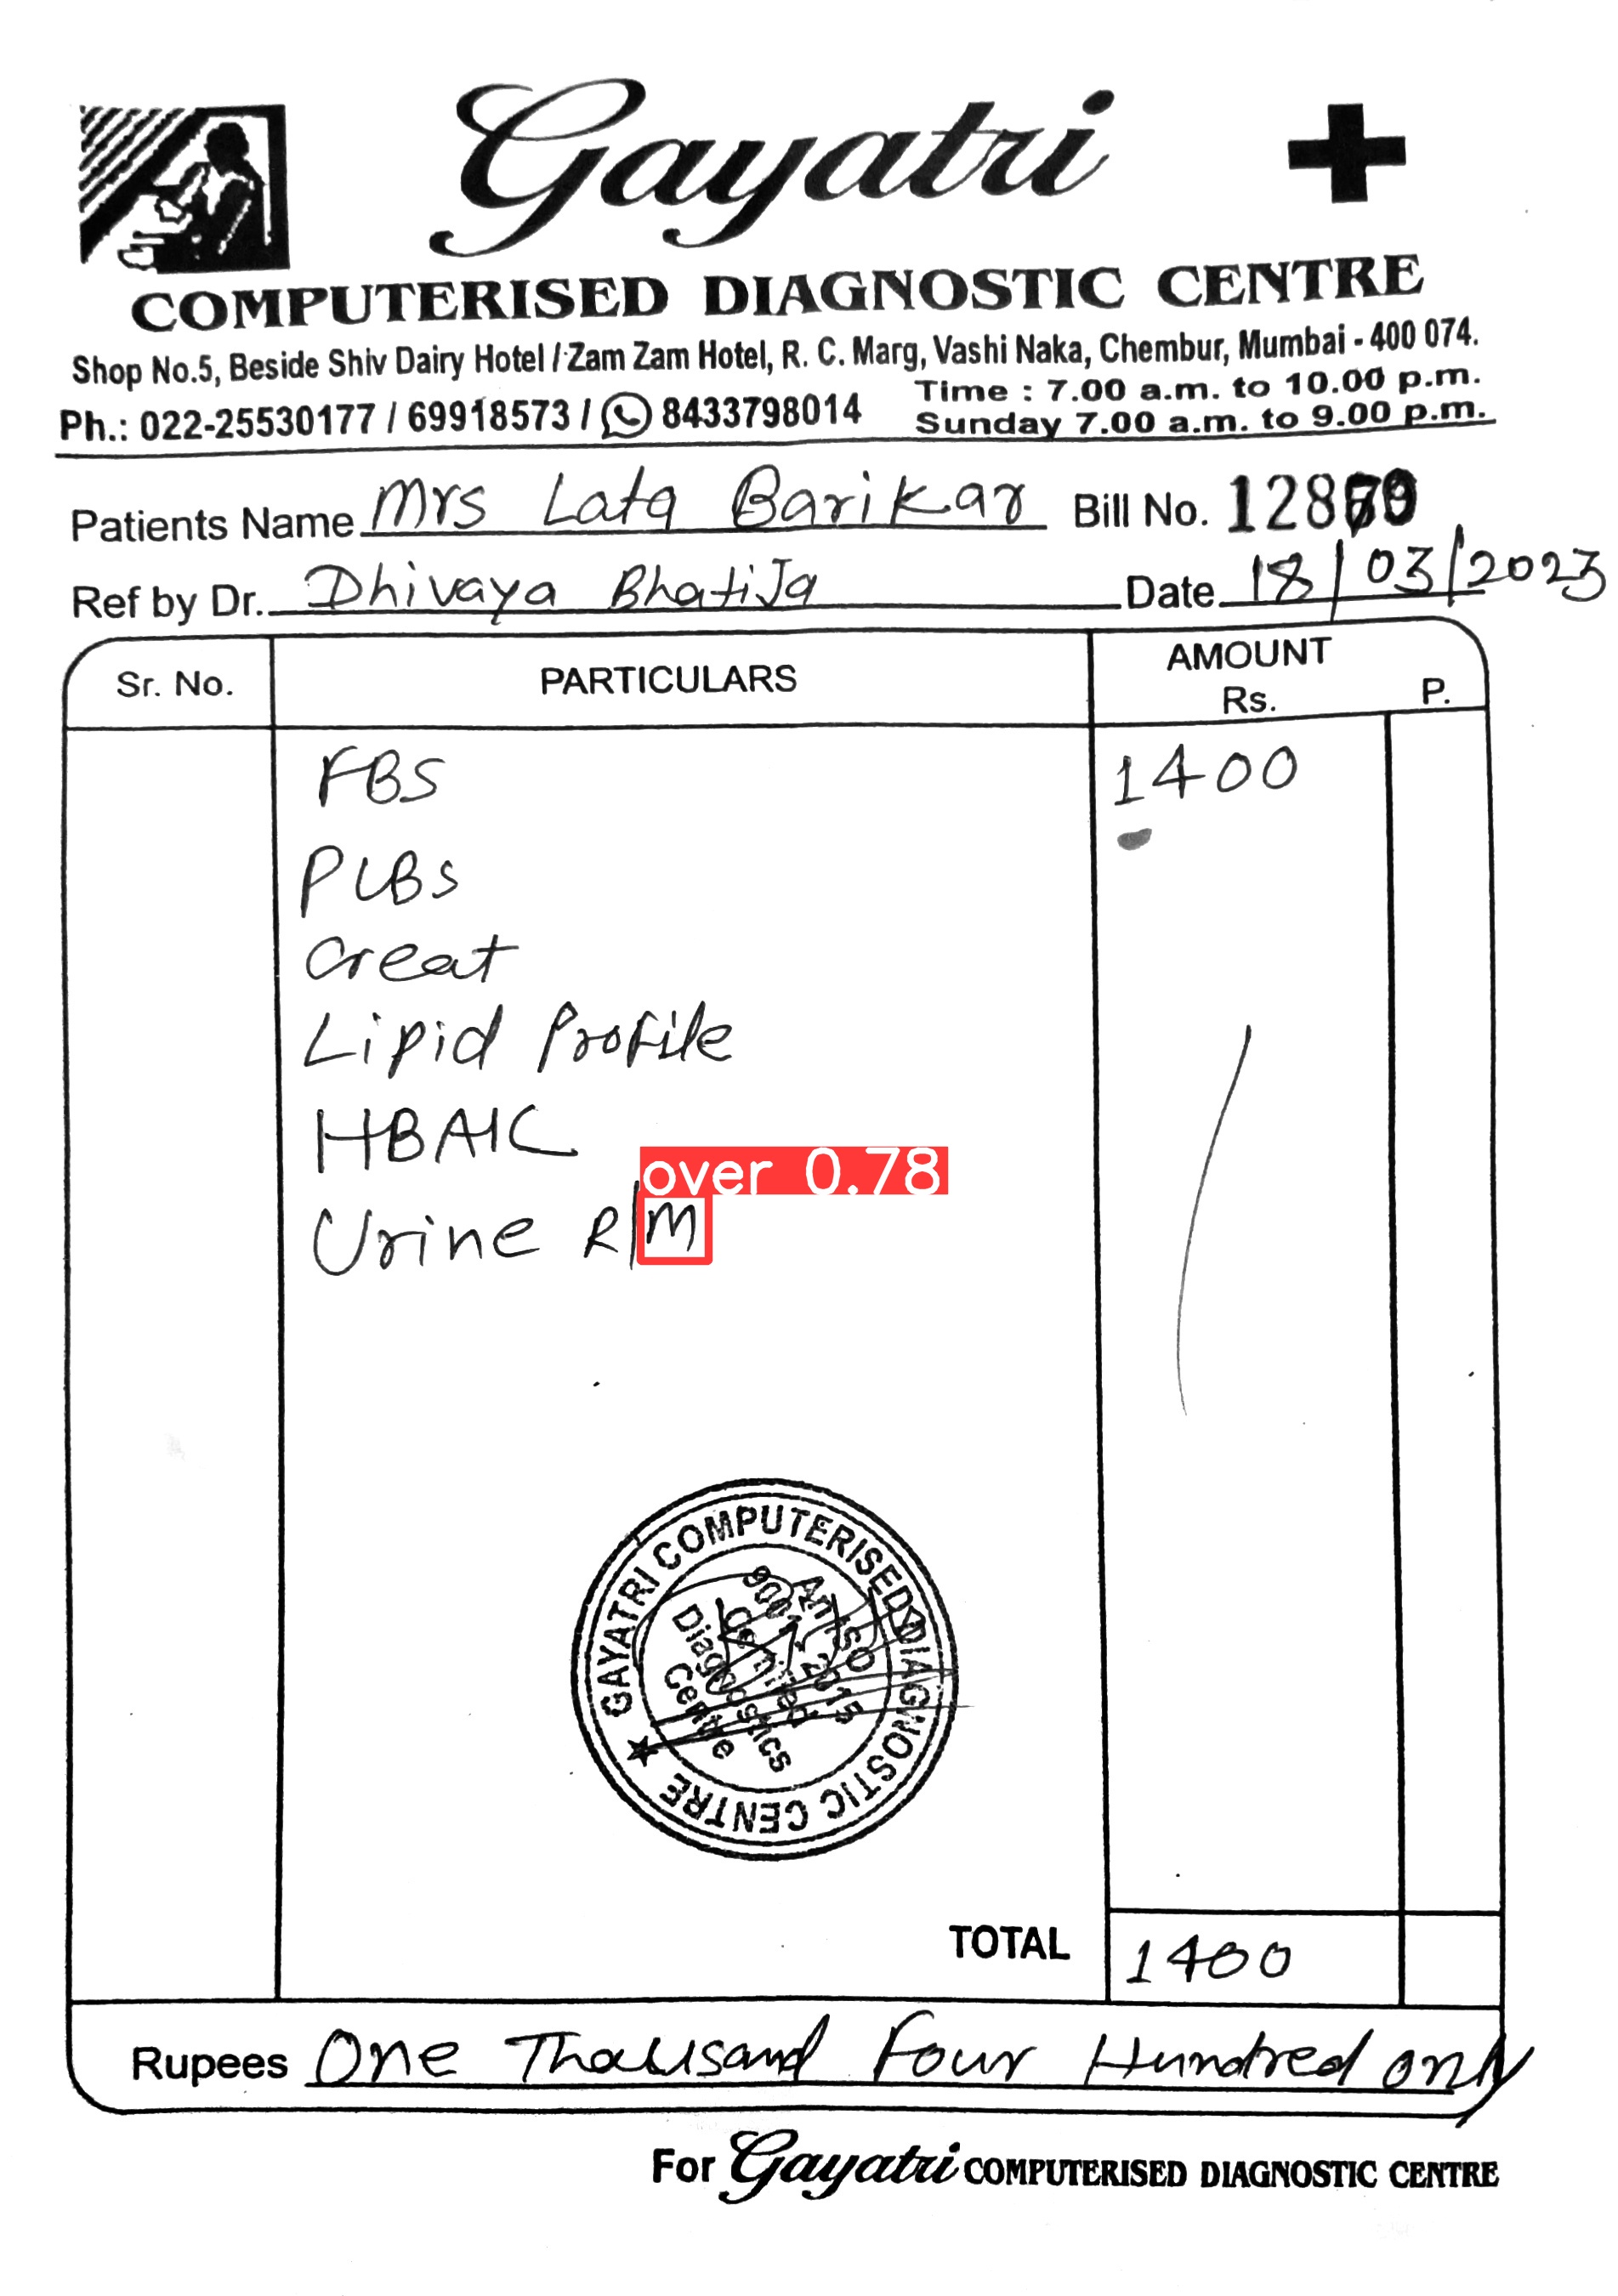 Gayatri
COMPUTERISED DIAGNOSTIC CENTRE
Shop No.5, Beside Shiv Dairy Hotel / Zam Zam Hotel, R. C. Marg, Vashi Naka, Chembur, Mumbai - 400 074.
Ph.: 022-25530177 / 69918573 / 8433798014
Time : 7.00 a.m. to 10.00 p.m.
Sunday 7.00 a.m. to 9.00 p.m.
Patients Name Mrs Lata Barikar Bill No.
Ref by Dr. Dhivaya Bhatija Date 18/03/2023
Sr. No. PARTICULARS AMOUNT Rs. P.
FBS 1400
PLBS
Creat
Lipid Profile
HBA1C
over 0.78
Urine R/M
GAYATRI COMPUTERISED DIAGNOSTIC CENTRE
An ISO
Diagnostics
Centre
TOTAL 1400
Rupees One Thousand Four Hundred only
For Gayatri COMPUTERISED DIAGNOSTIC CENTRE